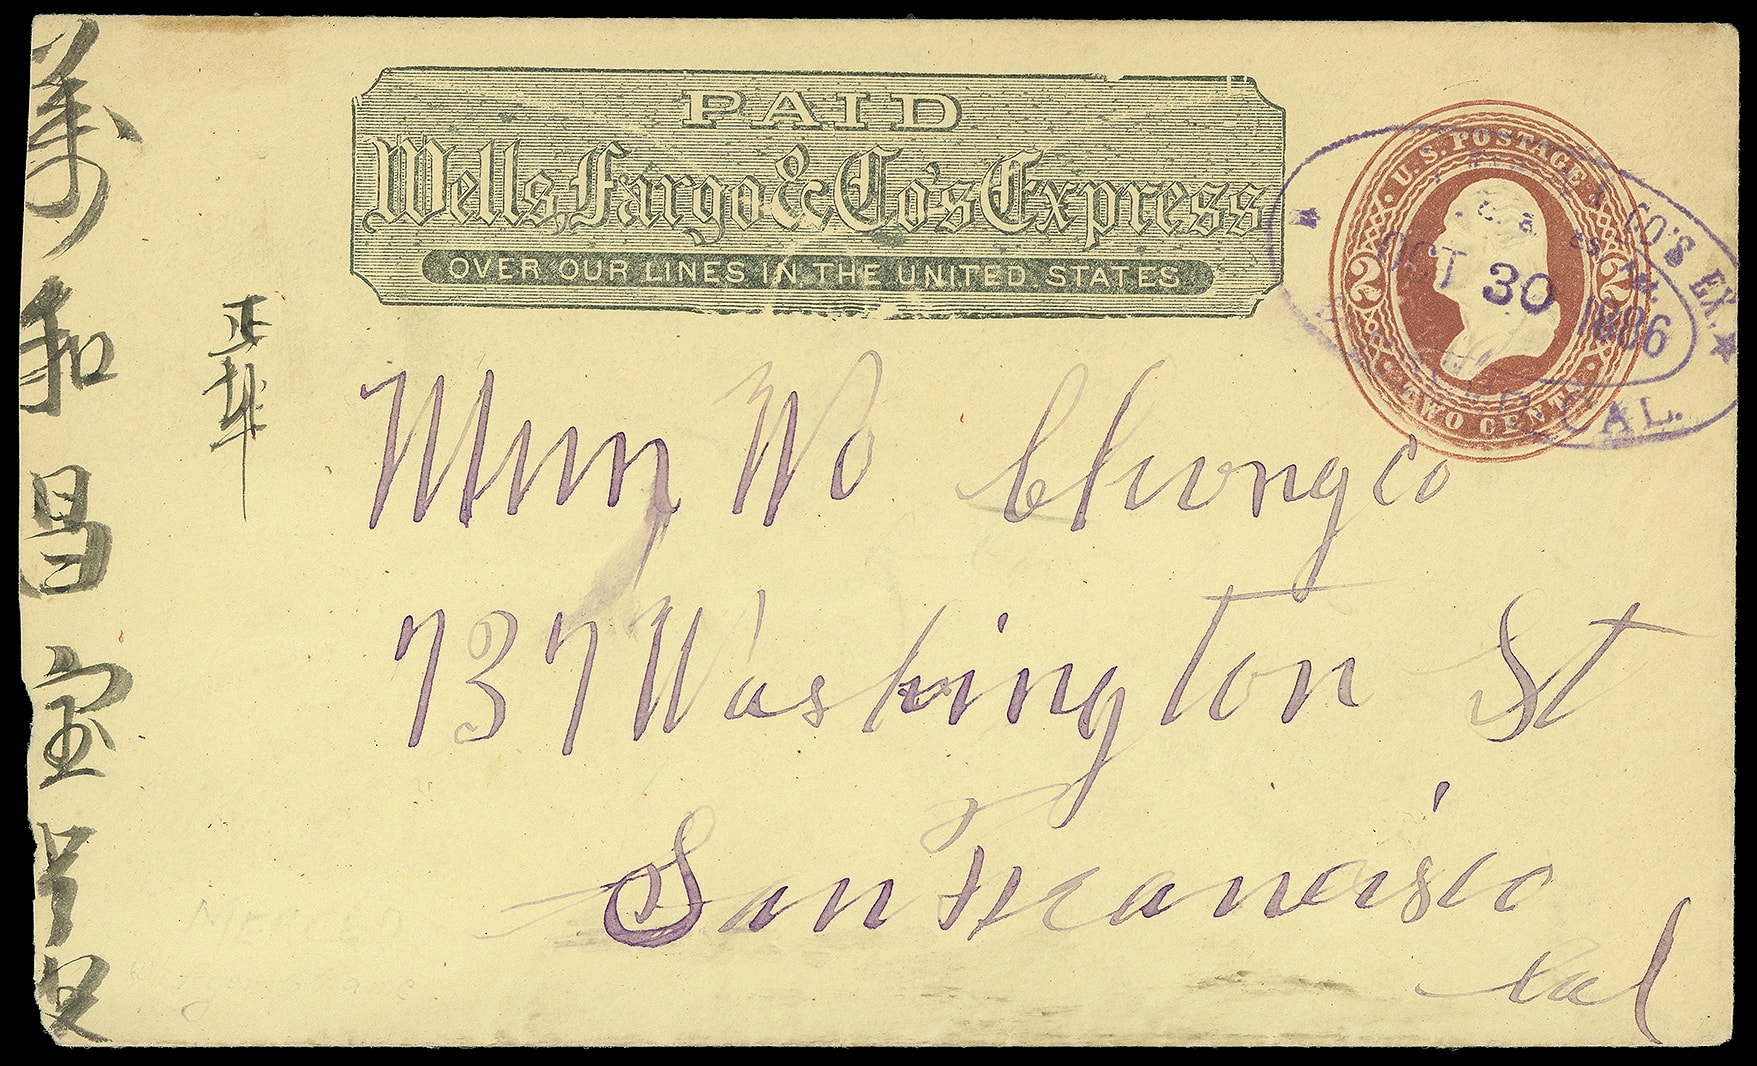 PAID
Wells, Fargo & Co's Express
OVER OUR LINES IN THE UNITED STATES
U.S. POSTAGE
2 2
TWO CENTS
& CO'S EX.
OCT 30 1886
CAL.
萬和昌宝号
Mun Wo Chung Co
737 Washington St
San Francisco
Cal